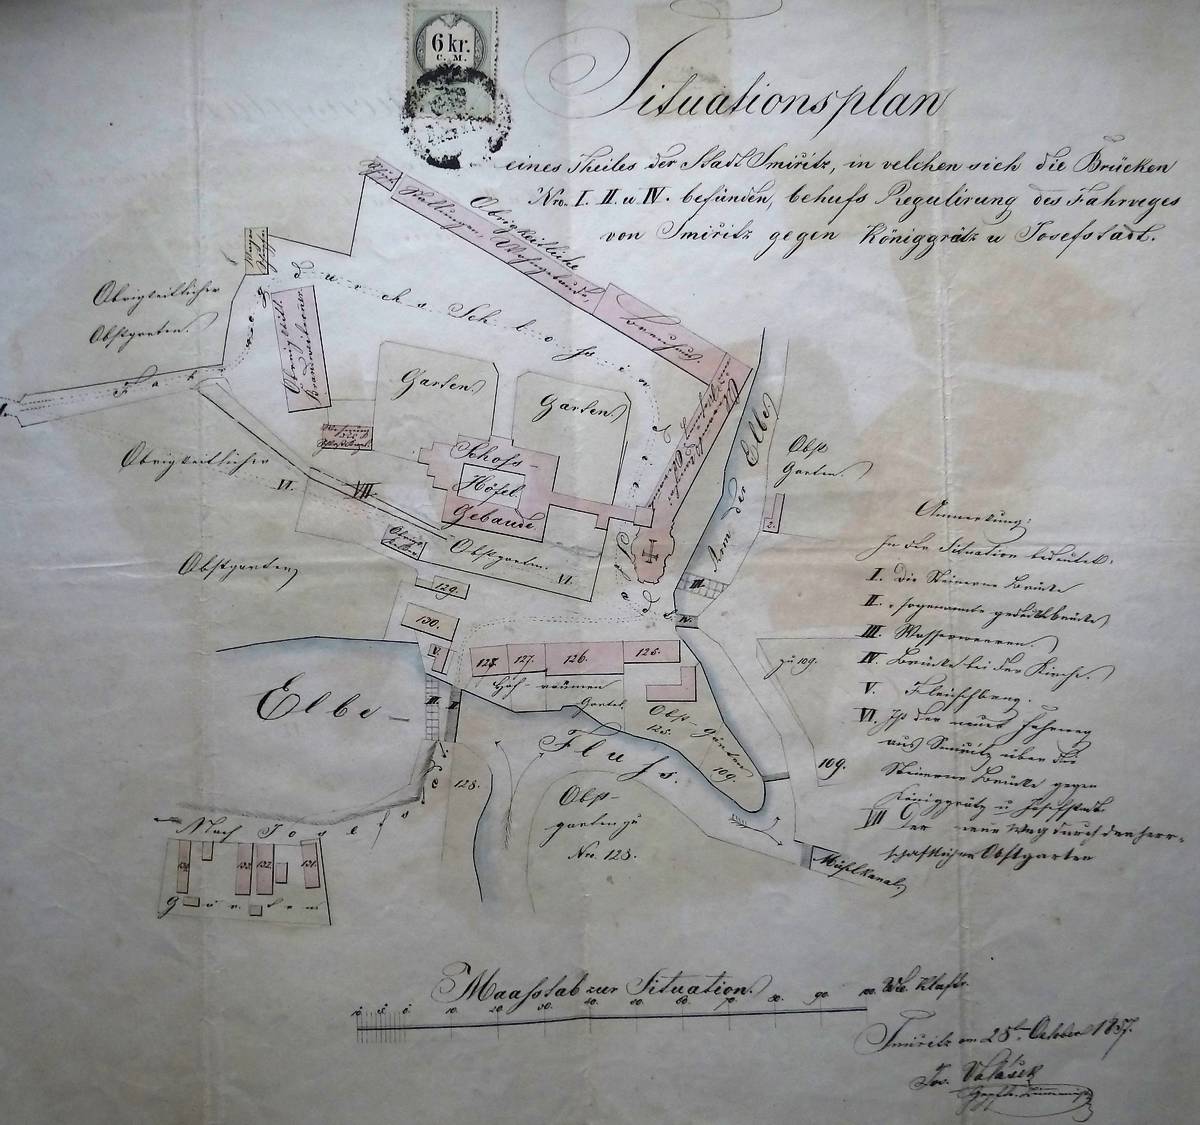 6 kr.
C. M.
Situationsplan
eines Theiles der Stadt Smiřitz, in welchen sich die Brücken
Nro. I. II. u IV. befinden, behufs Regulirung des Fahrweges
von Smiřitz gegen Königgrätz u Josefstadt.
Obrigkeitliche
Brauhaus.
Obrigkeitlicher
Obstgarten.
Garten.
Garten.
Schloss-
Höfel.
Gebäude.
Obrigkeitlicher
VI.
VII.
Obstgarten
Obstgarten.
VI.
Arm der Elbe
Obst
Garten.
III.
IV.
129.
130.
V.
127.
126.
125.
Elbe-
Fluss.
III.
II.
Obst-Garten
125.
109.
zu 109.
109.
128.
Obst-
garten zu
Nro. 128.
Mühlkanal
Nach Josefs
132.
131.
Gärten
Anmerkung:
In der Situation bedeutet:
I. die Steinerne Brücke
II. sogenannte gedeckte Brücke
III. Wasserwehren.
IV. Brücke bei der Kirche.
V. Fleischbank.
VI. Ist der neue Fahrweg
aus Smiřitz über die
Steinerne Brücke gegen
Königgrätz u Josefstadt
VII der neue Weg durch den herr-
schaftlichen Obstgarten
Maasstab zur Situation.
10 5 0 10. 20. 30. 40. 50. 60. 70. 80. 90. 100. W. Klaftr.
Smiřitz am 25t. October 1857.
Jos. Valášek